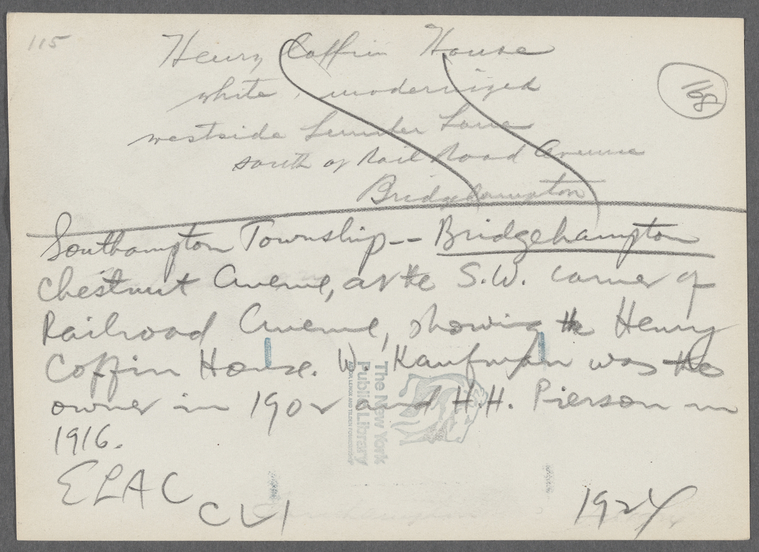 115
Henry Coffin House
white, modernized
168
westside Lumber Lane
south of Rail Road Avenue
Bridgehampton
Southampton Township -- Bridgehampton
Chestnut Avenue, at the S.W. corner of
Railroad Avenue, showing the Henry
Coffin House. W. Kaufman was the
owner in 1902 and H.H. Pierson in
1916.
The New York
Public Library
ELAC
CLI
1924